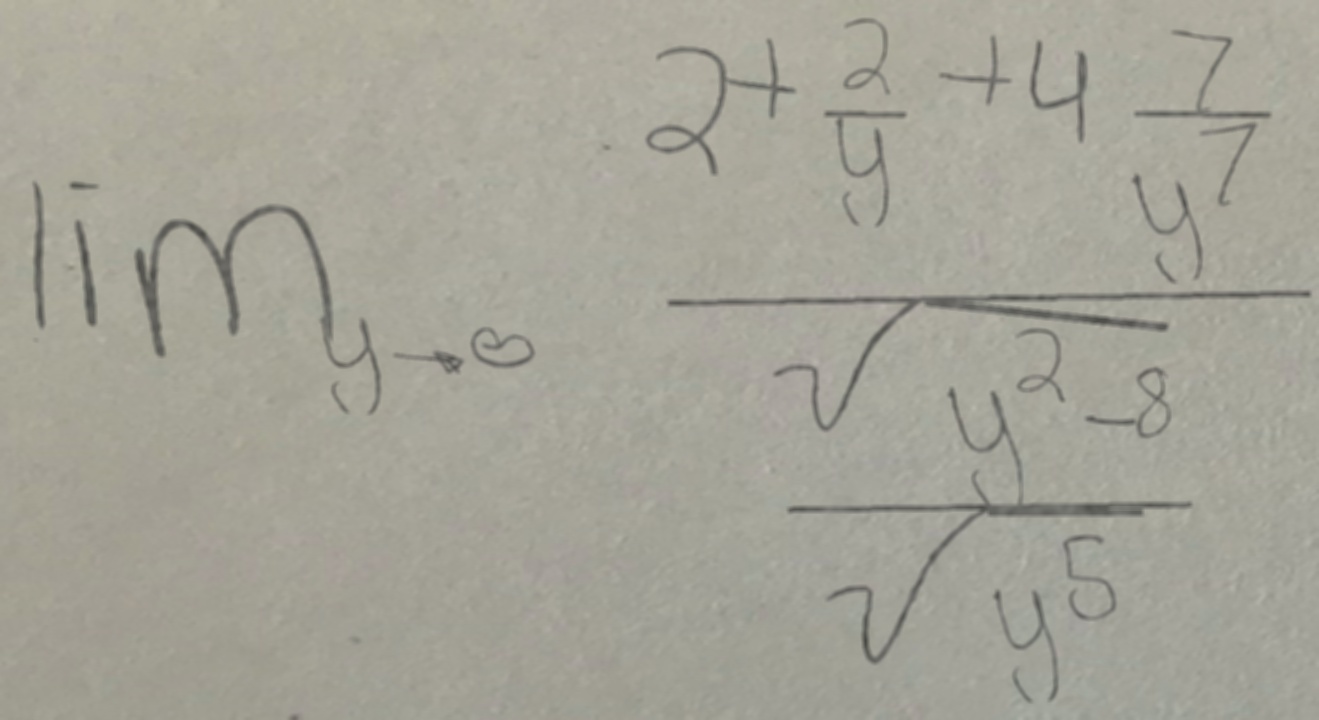 \lim_{y \to \infty} \frac{2 + \frac{2}{y} + 4 \frac{7}{y^7}}{\frac{\sqrt{y^2 - 8}}{\sqrt{y^5}}}